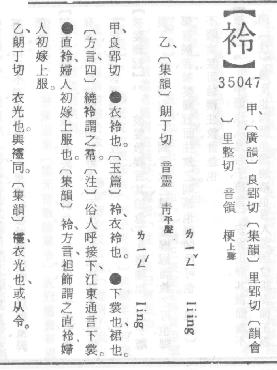 【袊】
35047
甲、〔廣韻〕良郢切〔集韻〕里郢切〔韻會
〕里整切 音領 梗上聲
ㄌㄧㄥˇ liing
乙、〔集韻〕朗丁切 音靈 青平聲
ㄌㄧㄥˊ liing
甲、良郢切 ●衣袊也。〔玉篇〕袊、衣袊也。●下裳也、裙也。
〔方言、四〕繞袊謂之帬。〔注〕俗人呼接下、江東通言下裳。
●直袊、婦人初嫁上服也。〔集韻〕袊、方言、袒飾謂之直袊、婦
人初嫁上服。
乙、朗丁切 衣光也。與𧟙同。〔集韻〕𧟙、衣光也、或从令。